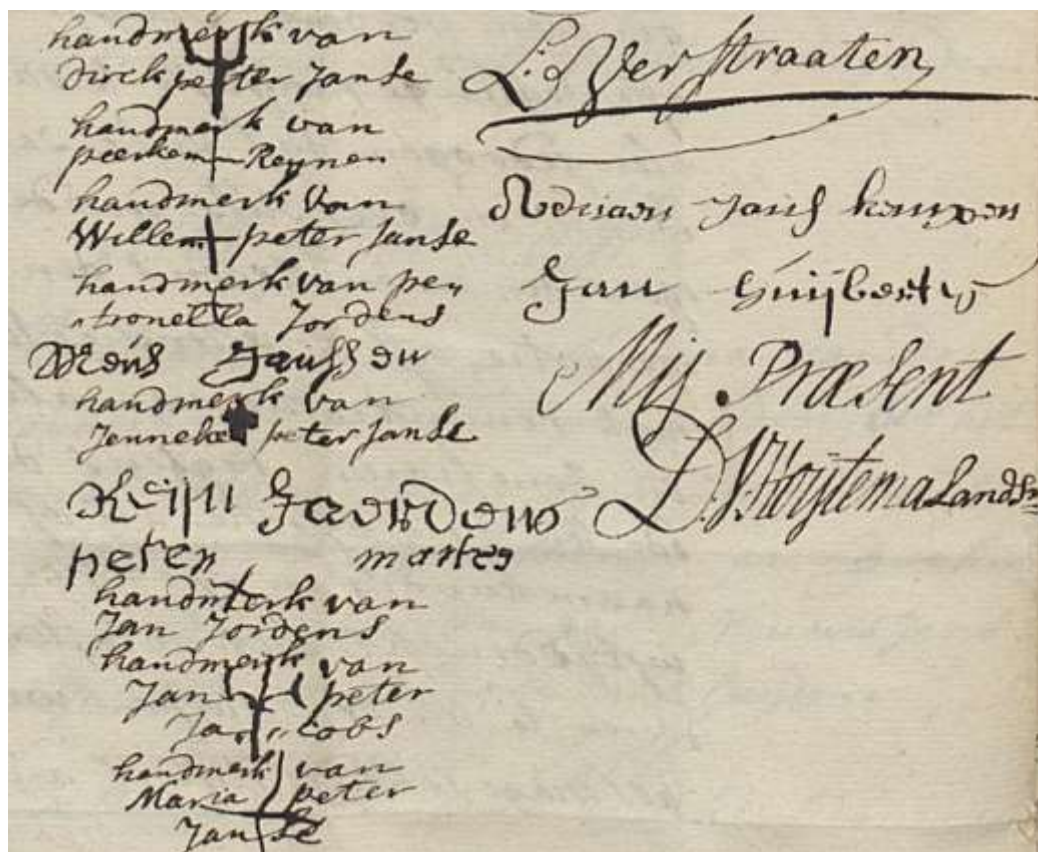 handmerk van
Dirck peeter Janse
handmerk van
peerke Reynen
handmerk van
Willem peter Janse
handmerk van pe
tronella Jordens
Janssen
handmerk van
Jenneke peter Janse
Reijn Jaerdens
peter martes
handmerk van
Jan Jordens
handmerk van
Jan peter
Jacobs
handmerk van
Maria peter
Janse
L: Verstraaten
Adriaen Jans kempen
Jan Huijberts
Mij Præsent
D. Hoijtema Lands